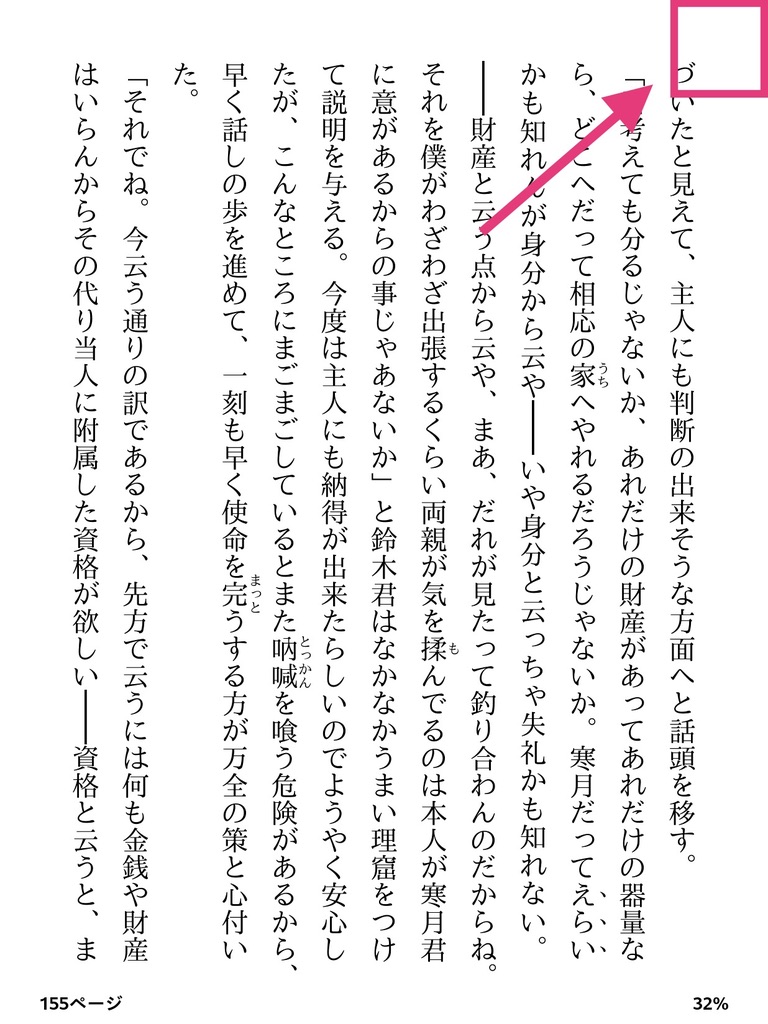 づいたと見えて、主人にも判断の出来そうな方面へと話頭を移す。
「考えても分るじゃないか、あれだけの財産があってあれだけの器量な
ら、どこへだって相応の家へやれるだろうじゃないか。寒月だってえらい
かも知れんが身分から云や――いや身分と云っちゃ失礼かも知れない。
――財産と云う点から云や、まあ、だれが見たって釣り合わんのだからね。
それを僕がわざわざ出張するくらい両親が気を揉んでるのは本人が寒月君
に意があるからの事じゃあないか」と鈴木君はなかなかうまい理窟をつけ
て説明を与える。今度は主人にも納得が出来たらしいのでようやく安心し
たが、こんなところにまごまごしているとまた吶喊を喰う危険があるから、
早く話しの歩を進めて、一刻も早く使命を完うする方が万全の策と心付い
た。
「それでね。今云う通りの訳であるから、先方で云うには何も金銭や財産
はいらんからその代り当人に附属した資格が欲しい――資格と云うと、ま
うち
も
とっかん
まっと
155ページ
32%